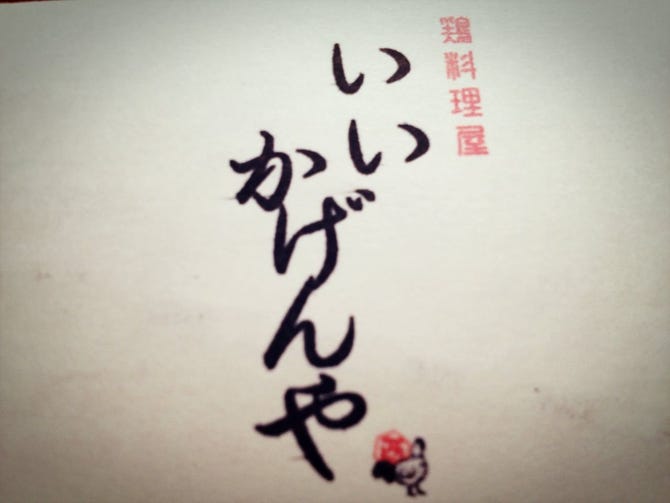 鶏料理屋
いい
かげんや